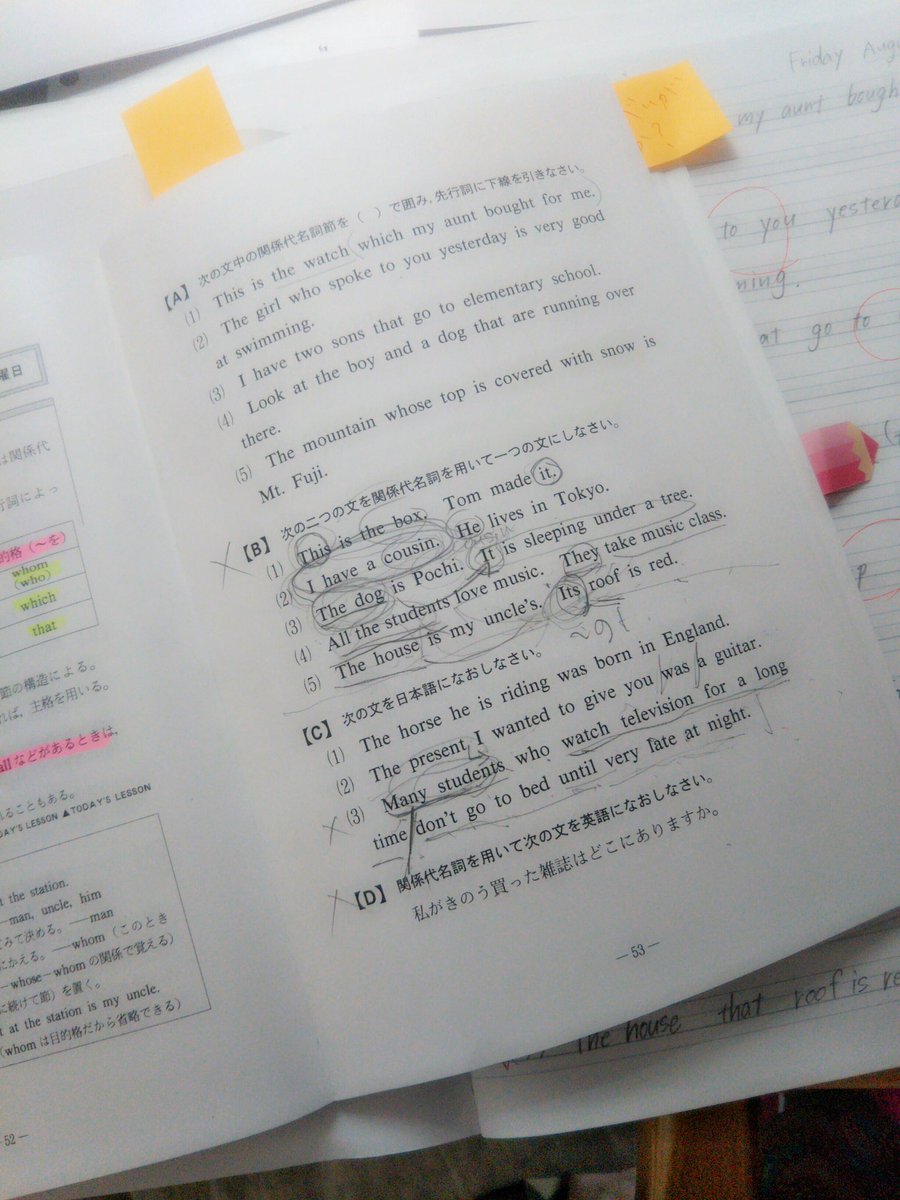 Friday Aug
my aunt bough
to you yesterd
ning.
at go to
【A】 次の文中の関係代名詞節を（ ）で囲み,先行詞に下線を引きなさい。
(1) This is the watch (which my aunt bought for me.)
(2) The girl who spoke to you yesterday is very good
at swimming.
(3) I have two sons that go to elementary school.
(4) Look at the boy and a dog that are running over
there.
(5) The mountain whose top is covered with snow is
Mt. Fuji.
【B】 次の二つの文を関係代名詞を用いて一つの文にしなさい。
(1) This is the box. Tom made it.
(2) I have a cousin. He lives in Tokyo.
(3) The dog is Pochi. It is sleeping under a tree.
(4) All the students love music. They take music class.
(5) The house is my uncle's. Its roof is red.
【C】 次の文を日本語になおしなさい。
(1) The horse he is riding was born in England.
(2) The present I wanted to give you was a guitar.
(3) Many students who watch television for a long
time don't go to bed until very late at night.
【D】 関係代名詞を用いて次の文を英語になおしなさい。
私がきのう買った雑誌はどこにありますか。
—53—
曜日
は関係代
行詞によっ
的格（〜を）
whom
(who)
which
that
節の構造による。
れば, 主格を用いる。
allなどがあるときは,
れることもある。
AY'S LESSON ▲TODAY'S LESSON
t the station.
—man, uncle, him
てみて決める。 —man
にかえる。 —whom（このとき
—whose—whomの関係で覚える）
に続けて節）を置く。
t at the station is my uncle.
（whomは目的格だから省略できる）
52—
The house that roof is re